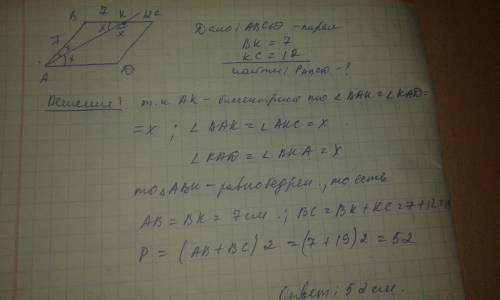 B 7 K 12 C
7 x x
x
A D
Дано: ABCD - парал
BK = 7
KC = 12
найти: PABCD - ?
Решение: т.к AK - биссектриса то ∠BAK = ∠KAD =
= x ; ∠BAK = ∠AKC = x
∠KAD = ∠BKA = x
то △ABK - равнобедрен., то есть
AB = BK = 7 см.; BC = BK + KC = 7+12=19
P = (AB + BC) 2 = (7 + 19) 2 = 52
Ответ: 52 см.